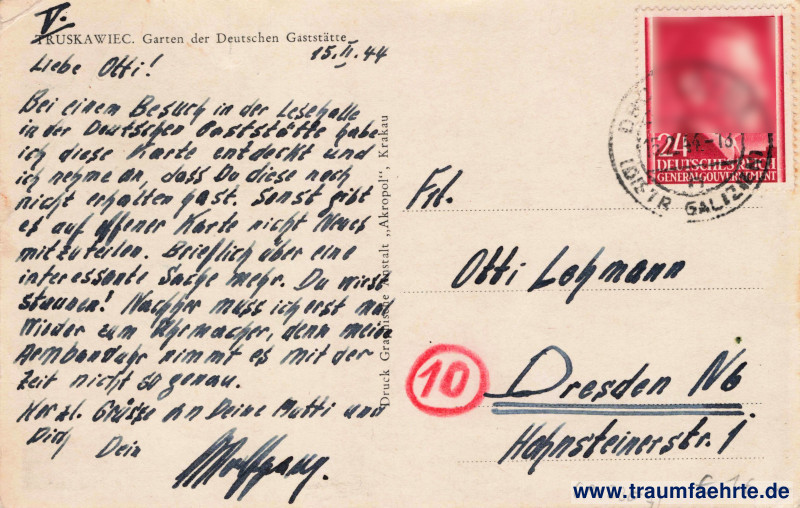 V.
TRUSKAWIEC. Garten der Deutschen Gaststätte
15.II.44
Liebe Otti!
Bei einem Besuch in der Lesehalle
in der Deutschen Gaststätte habe
ich diese Karte entdeckt und
ich nehme an, dass Du diese noch
nicht erhalten hast. Sonst gibt
es auf offener Karte nicht Neues
mitzuteilen. Brieflich über eine
interessante Sache mehr. Du wirst
staunen! Nachher muss ich erst mal
wieder zum Uhrmacher, denn meine
Armbanduhr nimmt es mit der
Zeit nicht so genau.
Herzl. Grüsse an Deine Mutti und
Dich Dein
Wolfgang.
Druck Graphische Anstalt „Akropol”, Krakau
24
DEUTSCHES REICH
GENERALGOUVERNMENT
(DISTR. GALIZIEN)
Frl.
Otti Lehmann
10
Dresden N6
Hohnsteinerstr. 1
www.traumfaehrte.de